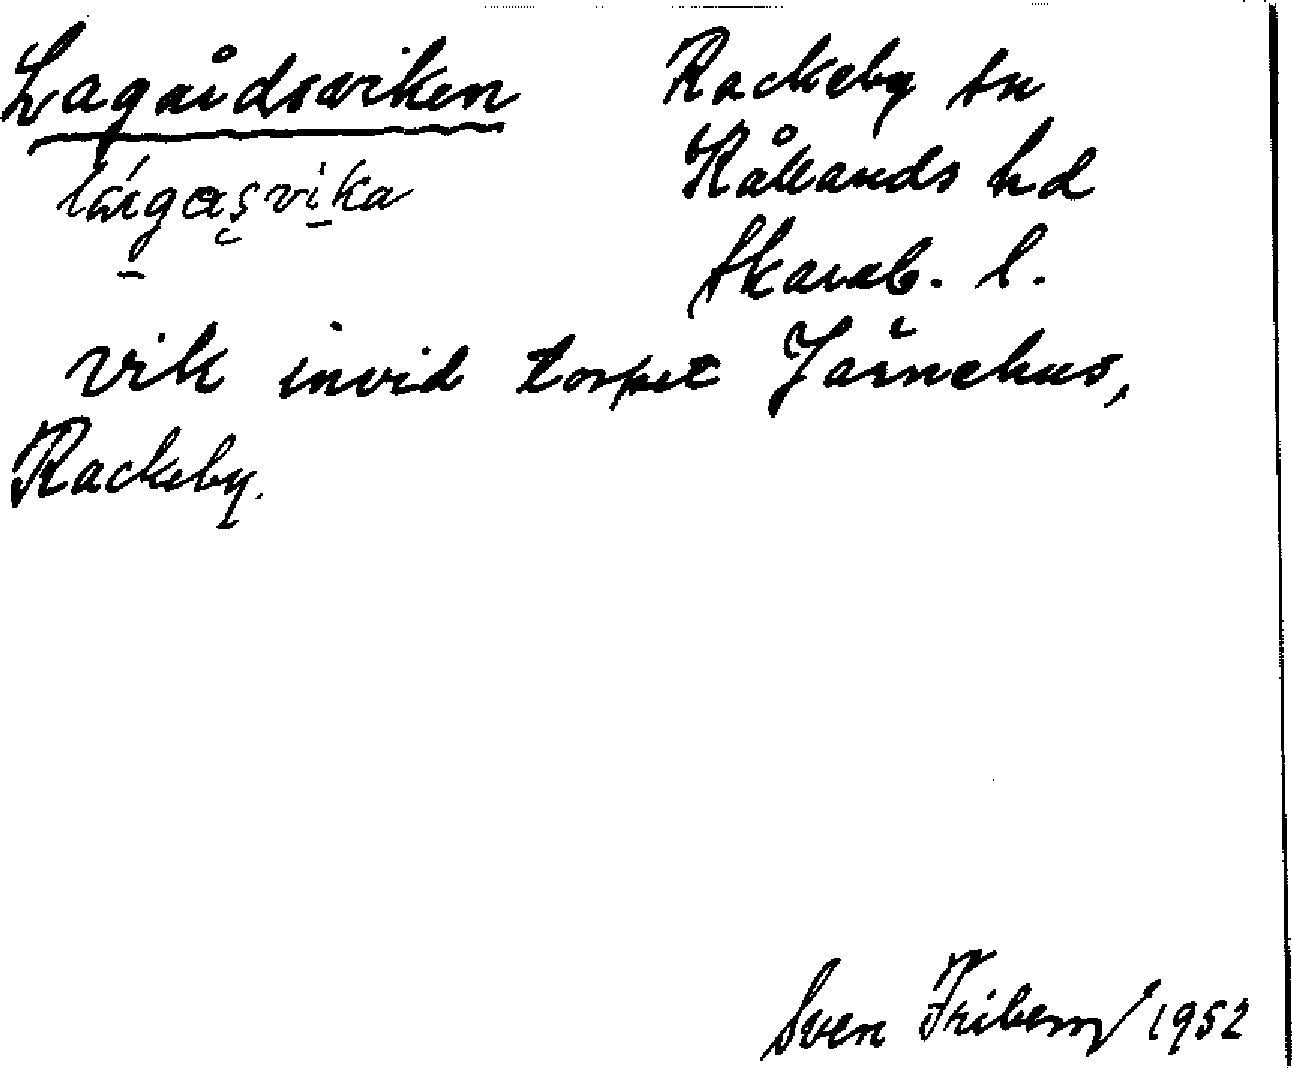 Lagårdsviken
Rackeby sn
Kållands hd
Skarab. l.
vik invid torpet Järnehus,
Rackeby.
Sven Friberg 1952